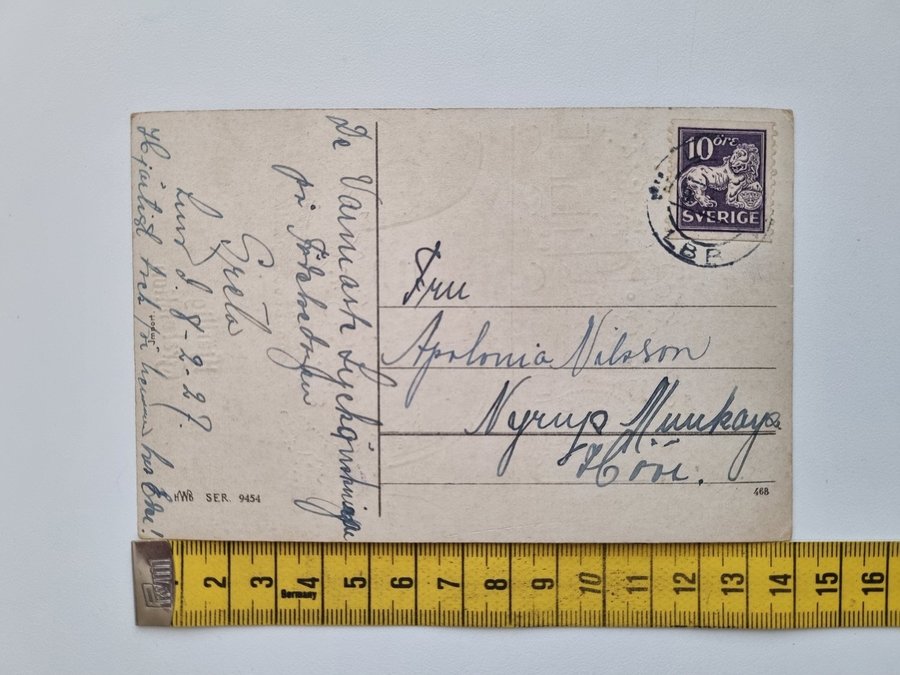 De Varmaste Lyckönskningar
på Födelsedagen
Greta
Lund d. 8-2-27.
Hjärtligt tack, för
10 öre
SVERIGE
LBB
Fru
Apolonia Nilsson
Nyrup Munkarp
Höör.
HWB SER. 9454
468
2 3 4 5 6 7 8 9 10 11 12 13 14 15 16
Germany